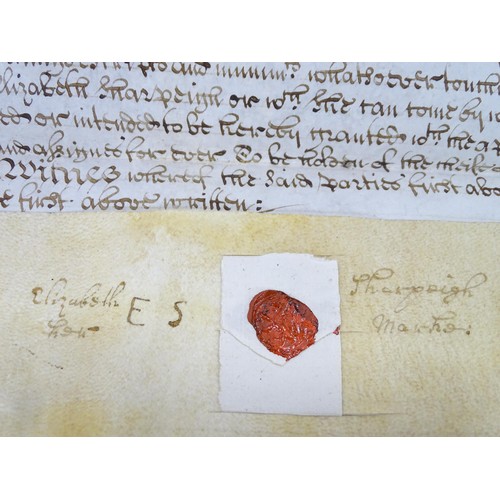 muniments whatsoever touch
Elizabeth Sharpeigh or wch she can come by w
ed or intended to be hereby granted wth the ap
and assignes for ever To be holden of the cheife
Witnes whereof the said parties first abo
e first above written:
Elizabeth E S Sharpeigh
her Marke: